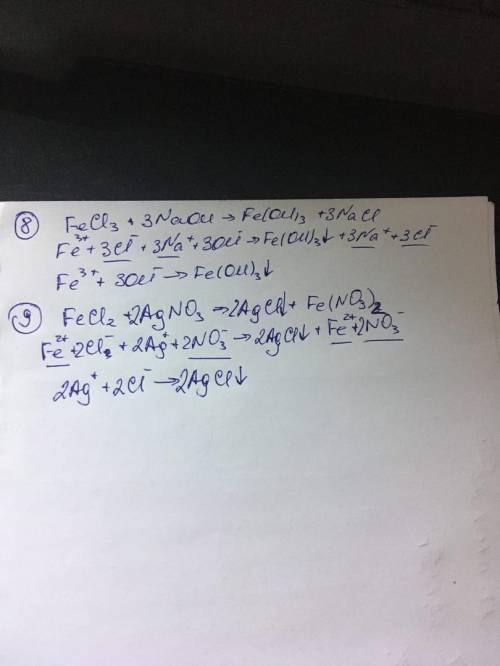 8 FeCl₃ + 3NaOH → Fe(OH)₃ + 3NaCl
Fe³⁺ + 3Cl⁻ + 3Na⁺ + 3OH⁻ → Fe(OH)₃↓ + 3Na⁺ + 3Cl⁻
Fe³⁺ + 3OH⁻ → Fe(OH)₃↓
9 FeCl₂ + 2AgNO₃ → 2AgCl↓ + Fe(NO₃)₂
Fe²⁺ + 2Cl⁻ + 2Ag⁺ + 2NO₃⁻ → 2AgCl↓ + Fe²⁺ + 2NO₃⁻
2Ag⁺ + 2Cl⁻ → 2AgCl↓